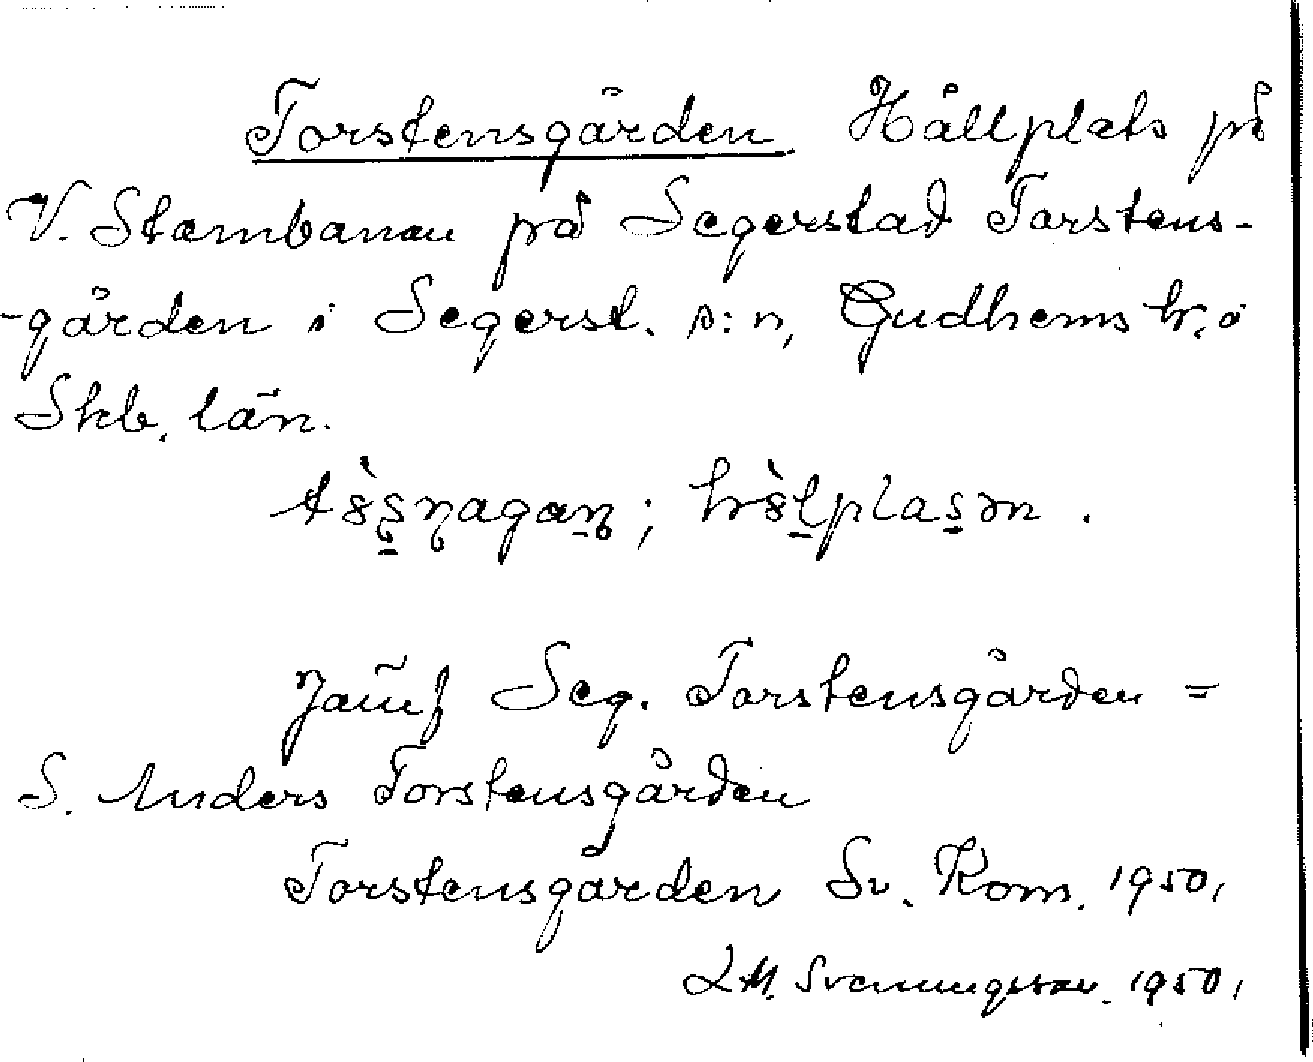 Torstensgården Hållplats på
V. Stambanan på Segerstad Torstens-
-gården i Segerst. s:n, Gudhems hr. o
Skb. län.

Jämf Seg. Torstensgården =
S. Anders Torstensgården
Torstensgården Sv. Kom. 1950,
L M. Svenungsson. 1950,